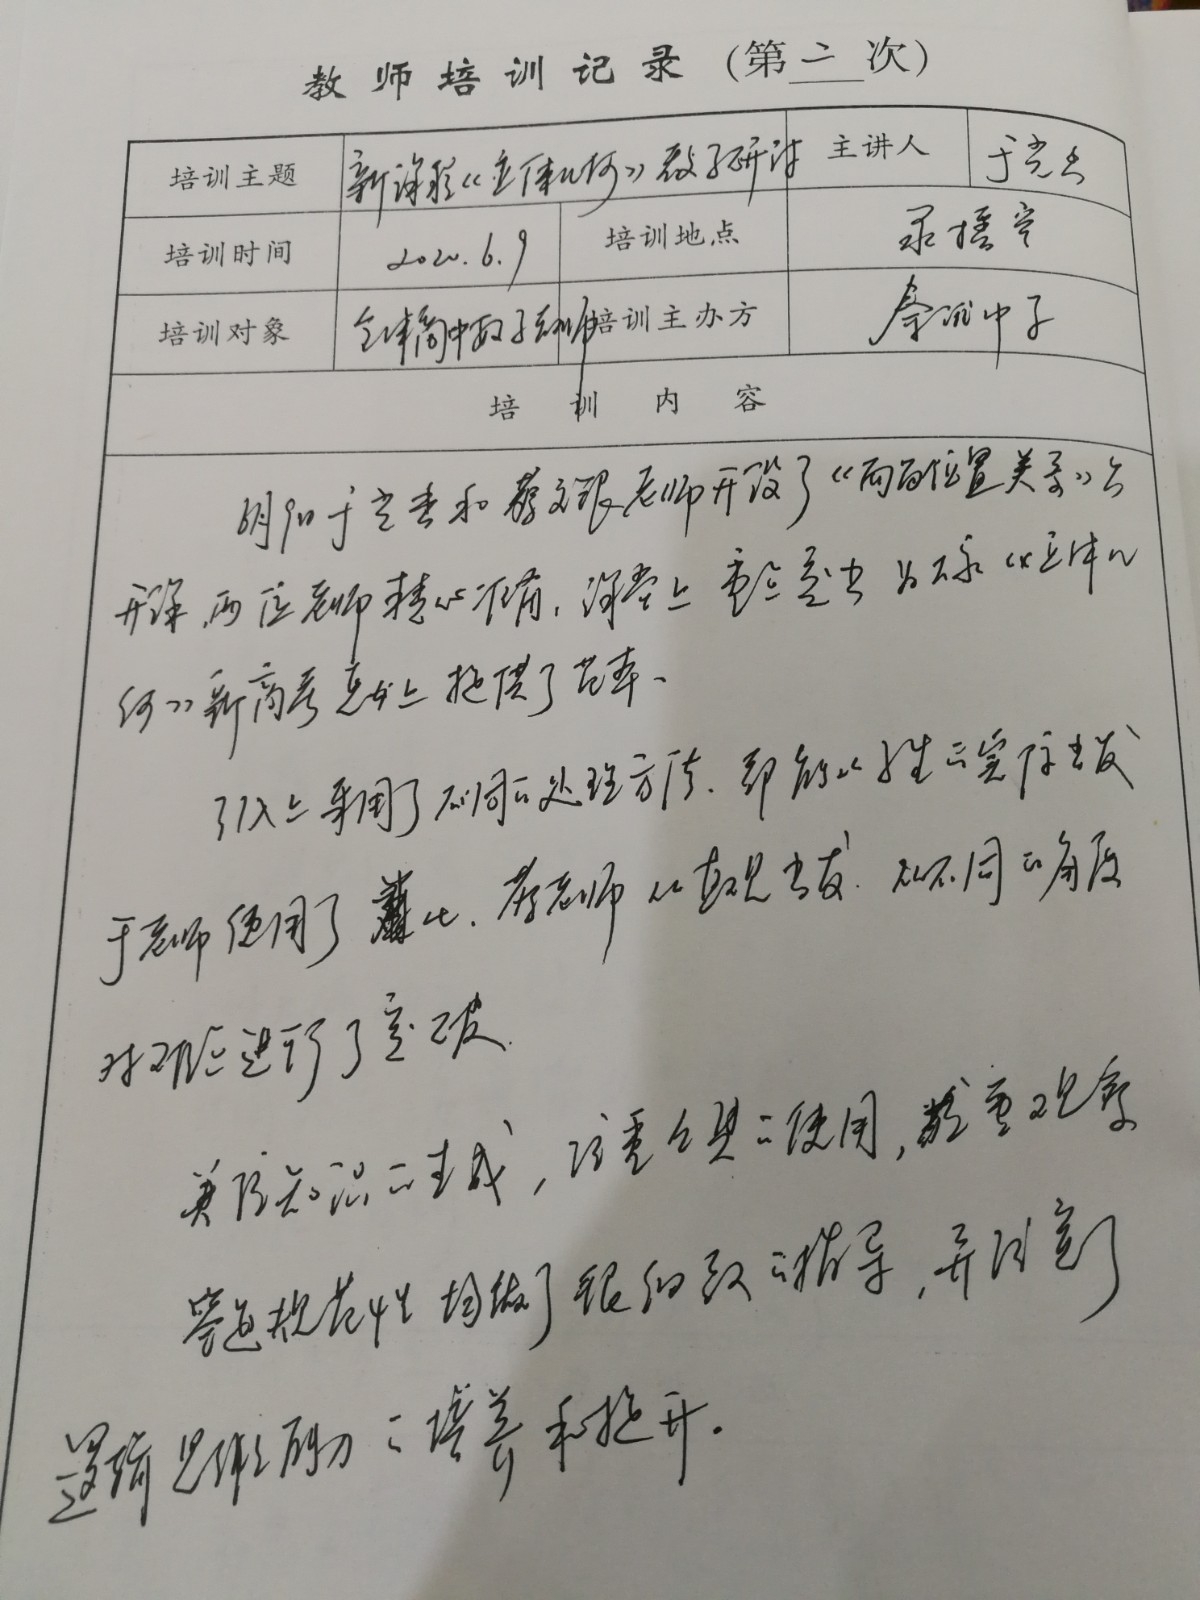 教师培训记录（第二次）
培训主题 新课程《立体几何》教学研讨 主讲人 于
培训时间 2020.6.9 培训地点 录播室
培训对象 全体高中数学教师 培训主办方 中学
培训内容
6月9日于 和蔡文银老师开设了《两面位置关系》公
开课，两位老师精心准备，课堂上重点突出为大家《立体几
何》新高考 上提供了范本、
引入上采用了不同的处理方法、都能从学生的实际出发
于老师使用了 比、蔡老师从直观出发、从不同的角度
对难点进行了突破.
英语知识的生成，注重教具的使用，注重观察
答题规范性均做了很细致的指导，并注意了
逻辑思维能力的培养和提升。